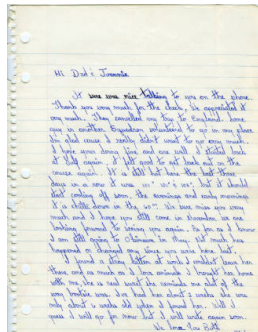 Hi Dad & Joannie
It sure was nice talking to you on the phone.
Thank you very much for the check, We appreciated it
very much. They cancelled my trip to England. Some
guy in another Squadron volunteered to go in my place
I'm glad cause I really didn't want to go very much.
I hope your doing fine and are well. I started back
at Golf again. It felt good to get back out on the
course again. It is still hot here the last three
days in a row it was but it should
start cooling off soon. The evenings and early mornings
it is still down in the 60's. We sure miss you very
much and I hope you still come in November we are
looking forward to seeing you again. As far as I know
I am still going to in May. Not much has
happened or changed any since you were here last.
I found a stray kitten at work I couldn't leave her
there and as much as I love animals I brought her home
with me, she is real sweet she reminds me alot of the
one We've had her about 2 weeks she was
only about 4 weeks old when I found her. Well I
guess I will go for now but I will write again soon.
We love you both